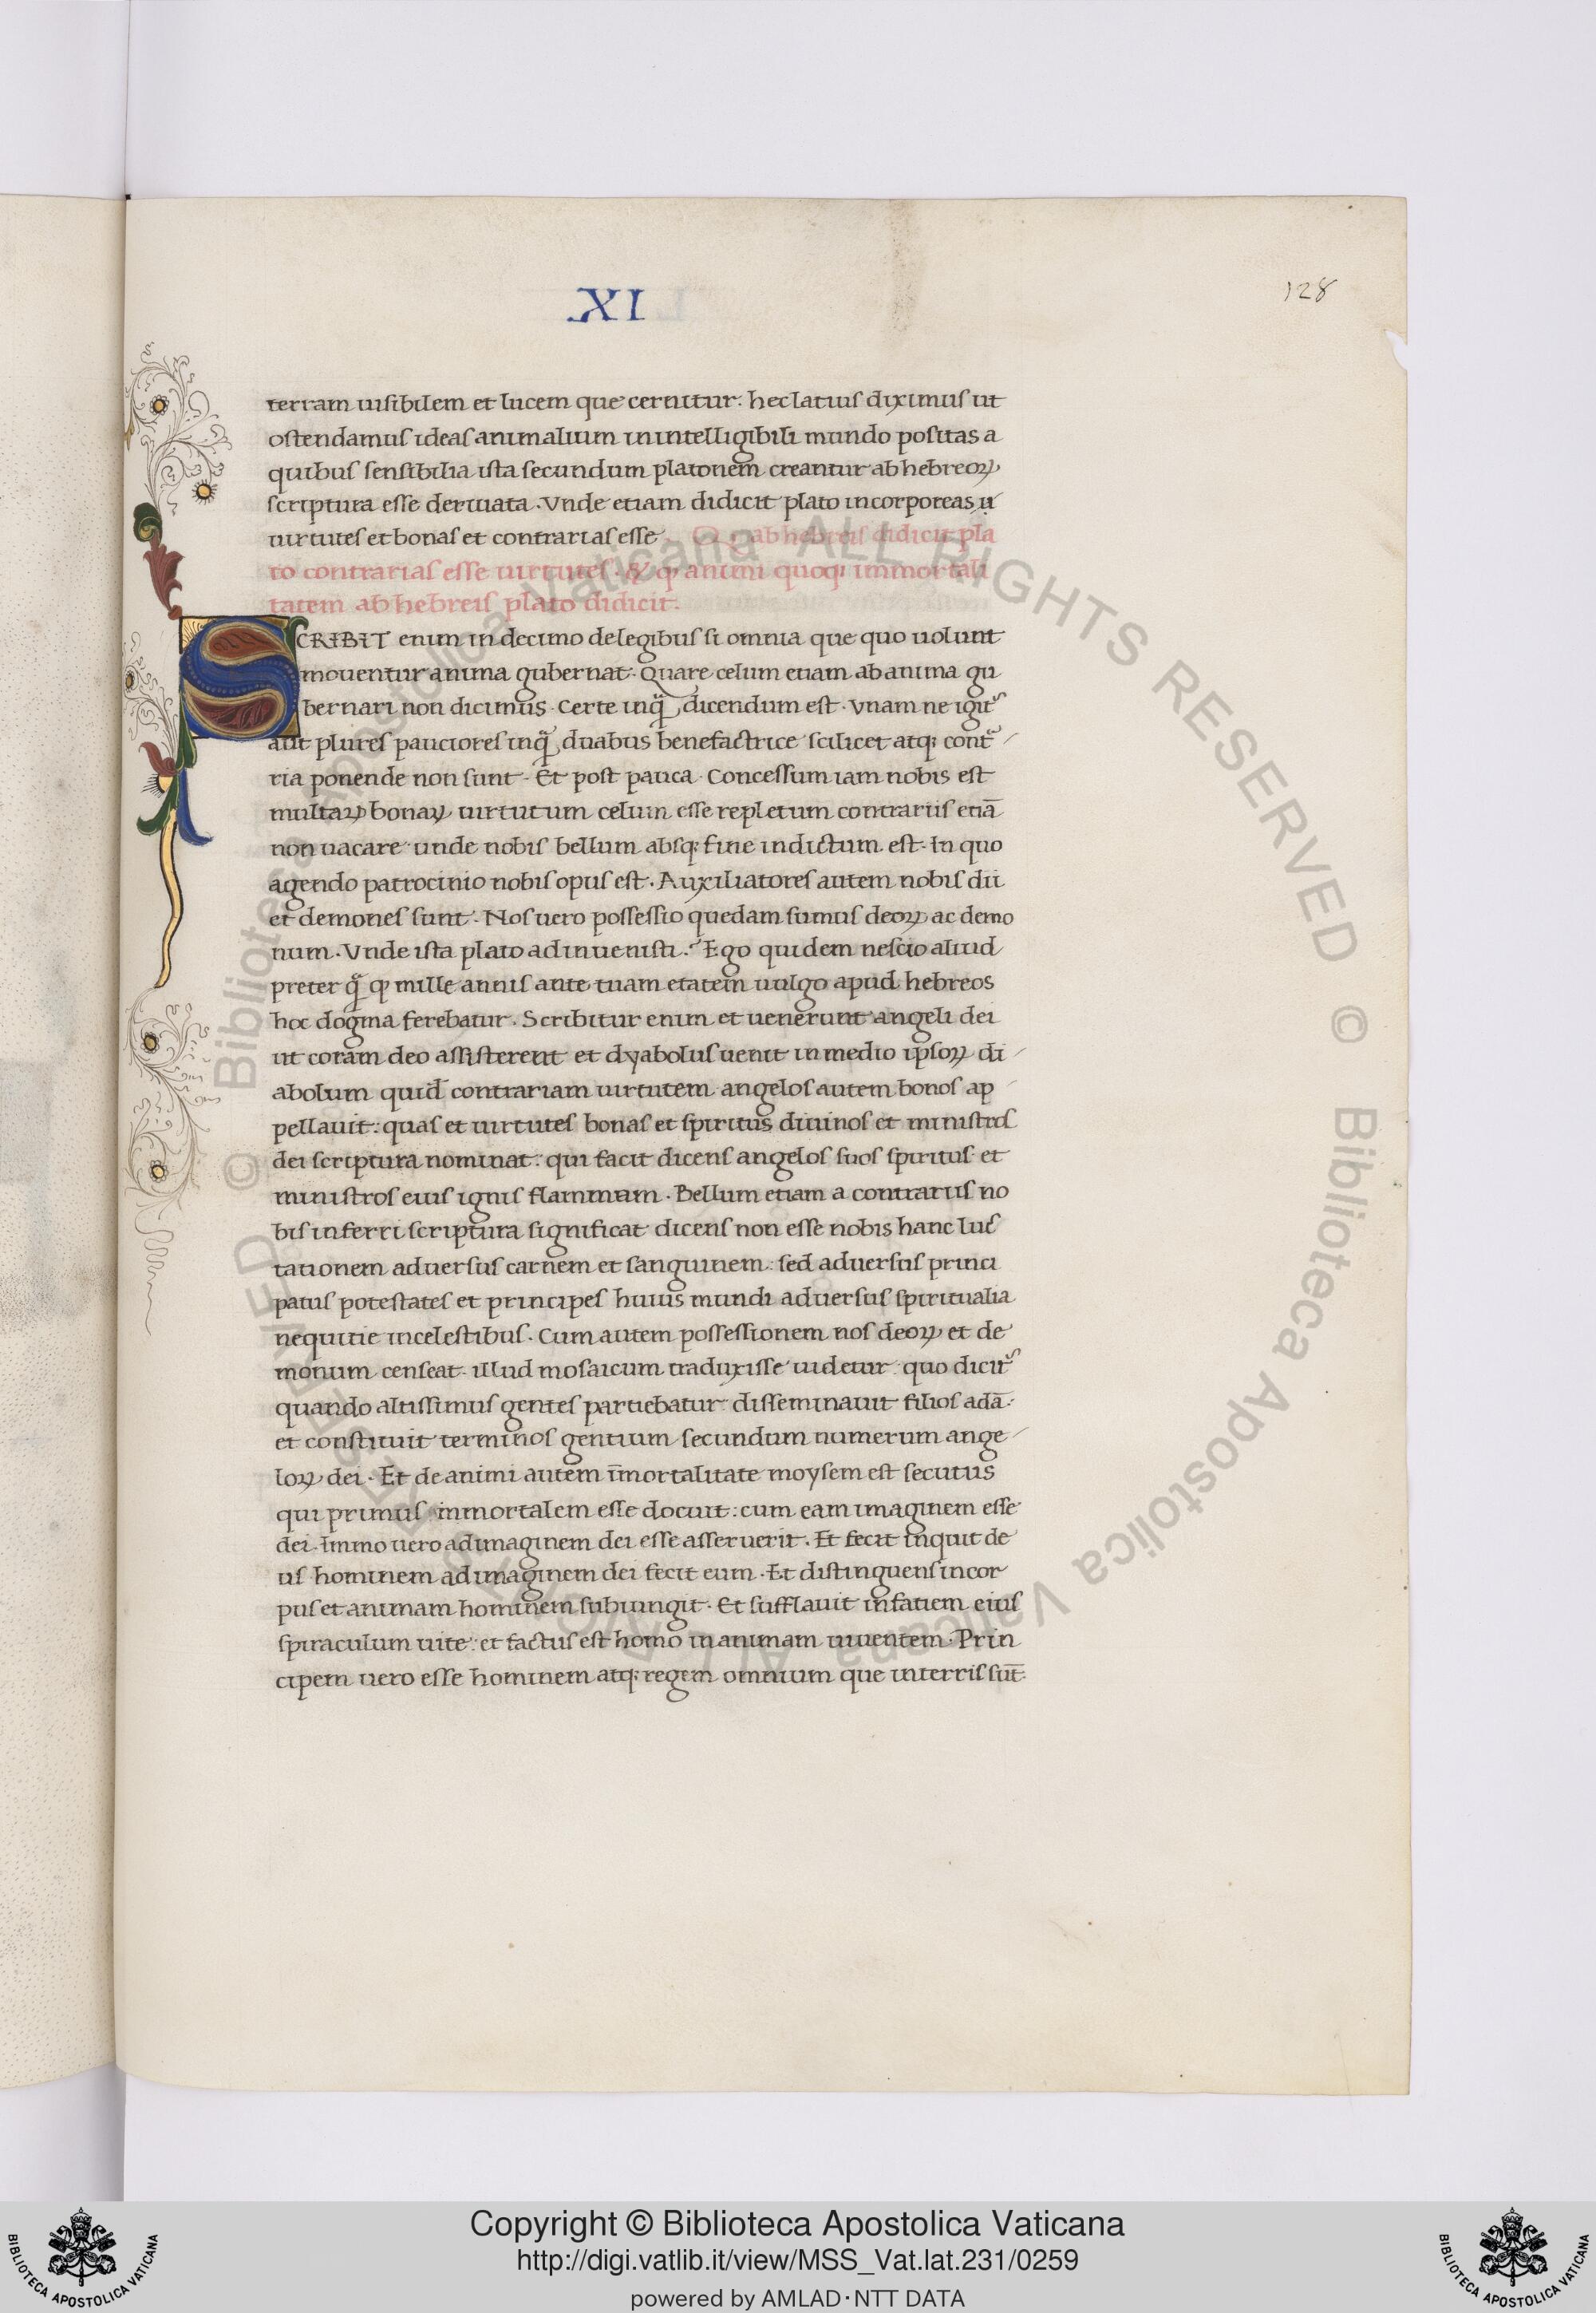 .XI
128
terram uisibilem et lucem que cernitur: hec latius diximus ut
ostendamus ideas animalium in intelligibili mundo positas a
quibus sensibilia ista secundum platonem creantur ab hebreoꝝ
scriptura esse deriuata. Vnde etiam didicit plato incorporeas u
uirtutes et bonas et contrarias esse Qꝫ ab hebreis didicit pla
to contrarias esse uirtutes. & ꝙ animi quoqꝫ immortali
tatem ab hebreis plato didicit.
SCRIBIT enim in decimo de legibus si omnia que quo uolunt
mouentur anima gubernat. Quare celum etiam ab anima gu
bernari non dicimus. Certe inq̃ dicendum est. Vnam ne igit᷑
aut plures pauciores inq̃ duabus benefactrice scilicet atqꝫ cont᷑
ria ponende non sunt. Et post pauca. Concessum iam nobis est
multaꝝ bonaꝝ uirtutum celum esse repletum contrariis etiā
non uacare unde nobis bellum absqꝫ fine indictum est. In quo
agendo patrocinio nobis opus est. Auxiliatores autem nobis dii
et demones sunt. Nos uero possessio quedam sumus deoꝝ ac demo
num. Vnde ista plato adinuenisti. Ego quidem nescio aliud
preter q̃ ꝙ mille annis ante tuam etatem uulgo apud hebreos
hoc dogma ferebatur. Scribitur enim et uenerunt angeli dei
ut coram deo assisterent et dyabolus uenit in medio ip̄soꝝ di
abolum quid̄ contrariam uirtutem angelos autem bonos ap
pellauit: quas et uirtutes bonas et spiritus diuinos et ministros
dei scriptura nominat: qui facit dicens angelos suos spiritus et
ministros eius ignis flammam. Bellum etiam a contrariis no
bis inferri scriptura significat dicens non esse nobis hanc luc
tationem aduersus carnem et sanguinem: sed aduersus princi
patus potestates et principes huius mundi aduersus spiritualia
nequitie in celestibus. Cum autem possessionem nos deoꝝ et de
monum censeat. illud mosaicum traduxisse uidetur quo dicit᷑
quando altissimus gentes partiebatur disseminauit filios adā.
et constituit terminos gentium secundum numerum ange
loꝝ dei. Et de animi autem īmortalitate moysem est secutus
qui primus inmortalem esse docuit: cum eam imaginem esse
dei. Immo uero ad imaginem dei esse asseruerit. Et fecit inquit de
us hominem ad imaginem dei fecit eum. Et distinguens incor
pus et animam hominem subiungit. Et sufflauit in fatiem eius
spiraculum uite: et factus est homo in animam uiuentem. Prin
cipem uero esse hominem atqꝫ regem omnium que in terris sūt.
© Biblioteca Apostolica Vaticana ALL RIGHTS RESERVED
© Biblioteca Apostolica Vaticana ALL RIGHTS RESERVED
Copyright © Biblioteca Apostolica Vaticana
http://digi.vatlib.it/view/MSS_Vat.lat.231/0259
powered by AMLAD·NTT DATA
BIBLIOTECA APOSTOLICA VATICANA
BIBLIOTECA APOSTOLICA VATICANA